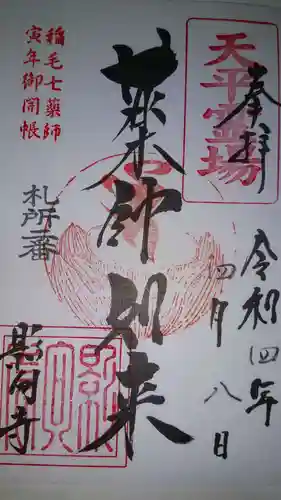 奉拝
天平霊場
令和四年
四月八日
薬師如来
稲毛七薬師
寅年御開帳
札所一番
影向寺